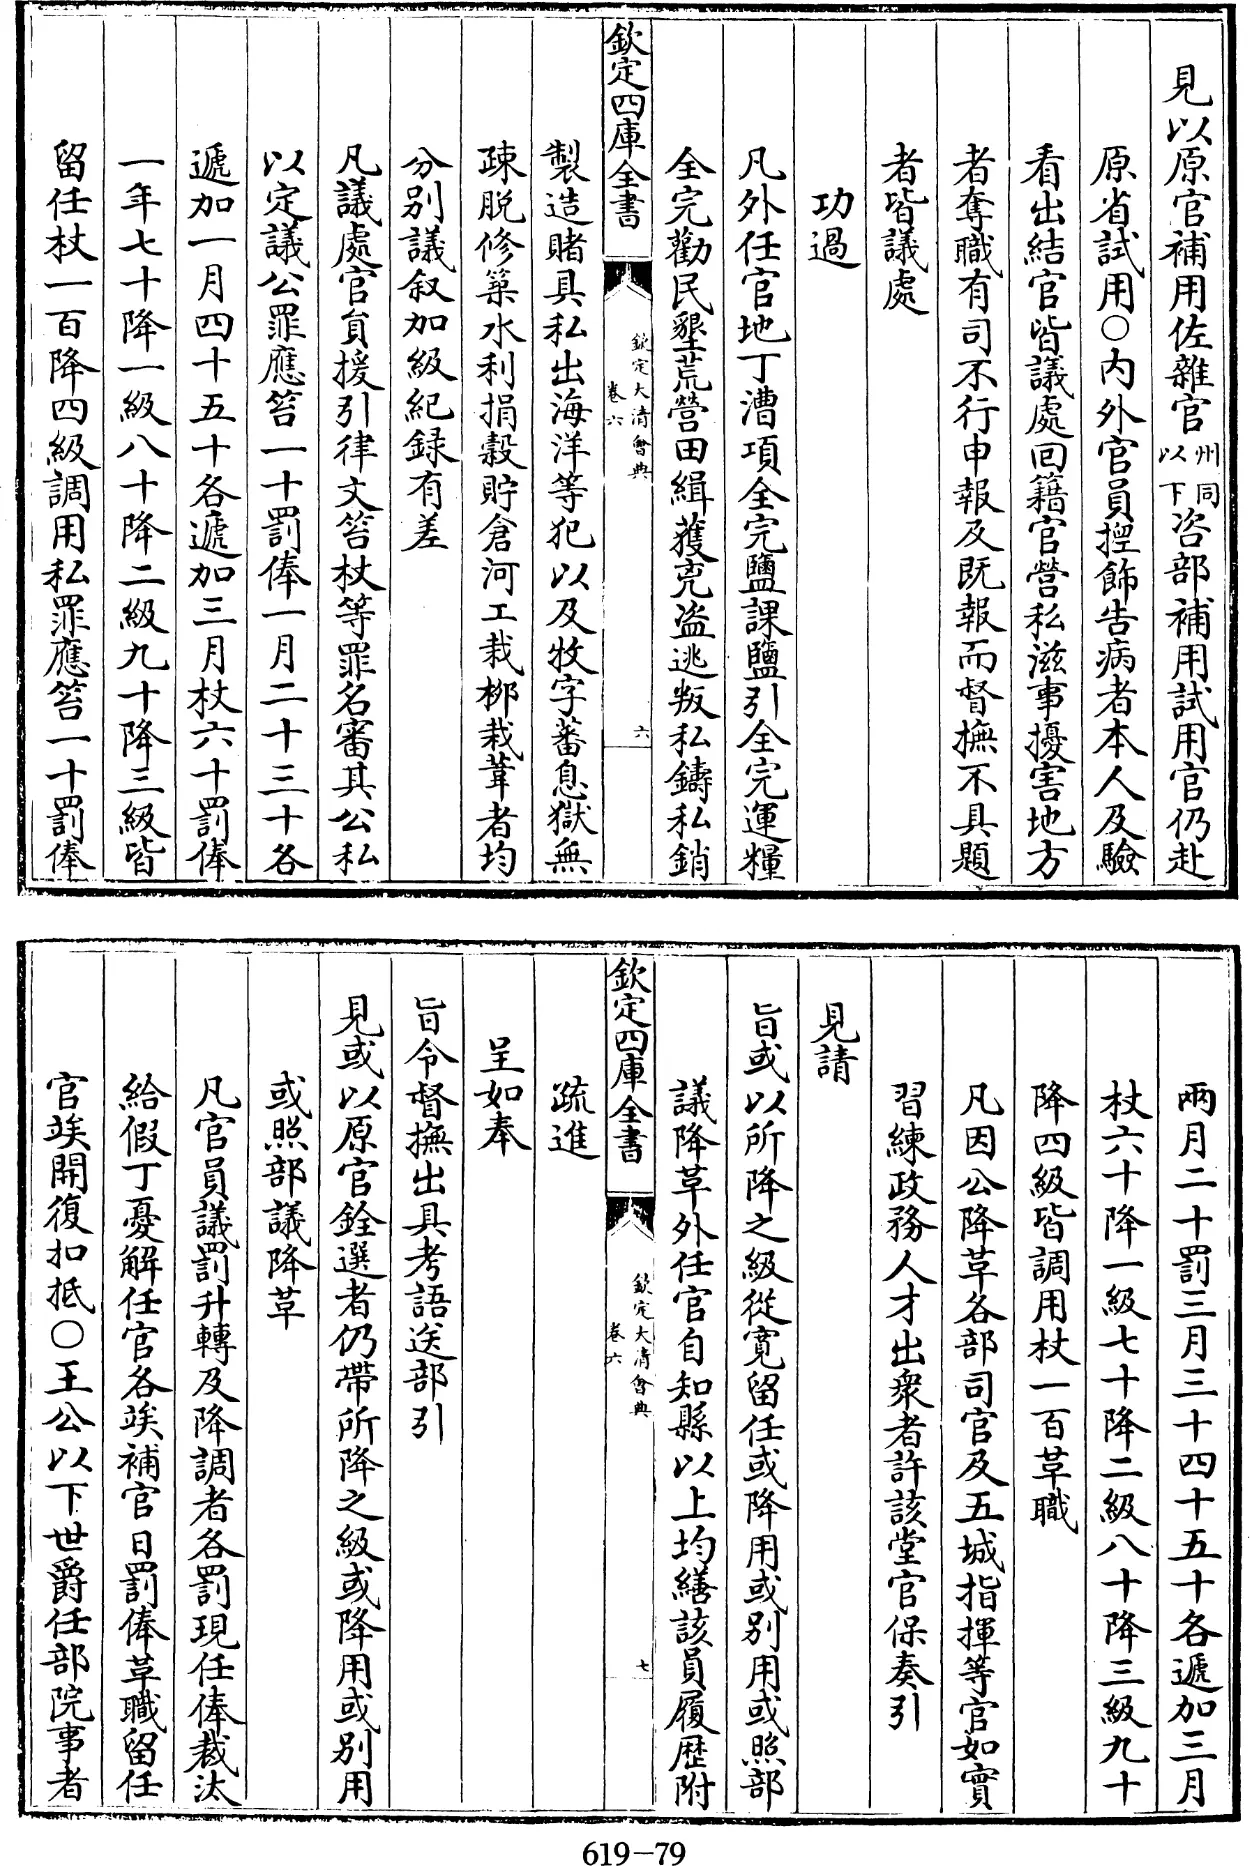 見以原官補用佐雜官州同以下咨部補用試用官仍赴
原省試用○內外官員揑飾告病者本人及驗
看出結官皆議處回籍官營私滋事擾害地方
者奪職有司不行申報及既報而督撫不具題
者皆議處
功過
凡外任官地丁漕項全完鹽課鹽引全完運糧
全完勸民墾荒營田緝獲兇盜逃叛私鑄私銷
欽定四庫全書
欽定大清會典
卷六
六
製造賭具私出海洋等犯以及牧字蕃息獄無
疎脫修築水利捐穀貯倉河工栽柳栽葦者均
分別議叙加級紀録有差
凡議處官員援引律文笞杖等罪名審其公私
以定議公罪應笞一十罰俸一月二十三十各
遞加一月四十五十各遞加三月杖六十罰俸
一年七十降一級八十降二級九十降三級皆
留任杖一百降四級調用私罪應笞一十罰俸
兩月二十罰三月三十四十五十各遞加三月
杖六十降一級七十降二級八十降三級九十
降四級皆調用杖一百革職
凡因公降革各部司官及五城指揮等官如實
習練政務人才出衆者許該堂官保奏引
見請
旨或以所降之級從寬留任或降用或别用或照部
議降革外任官自知縣以上均繕該員履歷附
欽定四庫全書
欽定大清會典
卷六
七
疏進
呈如奉
旨令督撫出具考語送部引
見或以原官銓選者仍帶所降之級或降用或别用
或照部議降革
凡官員議罰升轉及降調者各罰現任俸裁汰
給假丁憂解任官各竢補官日罰俸革職留任
官竢開復扣抵○王公以下世爵任部院事者
619-79